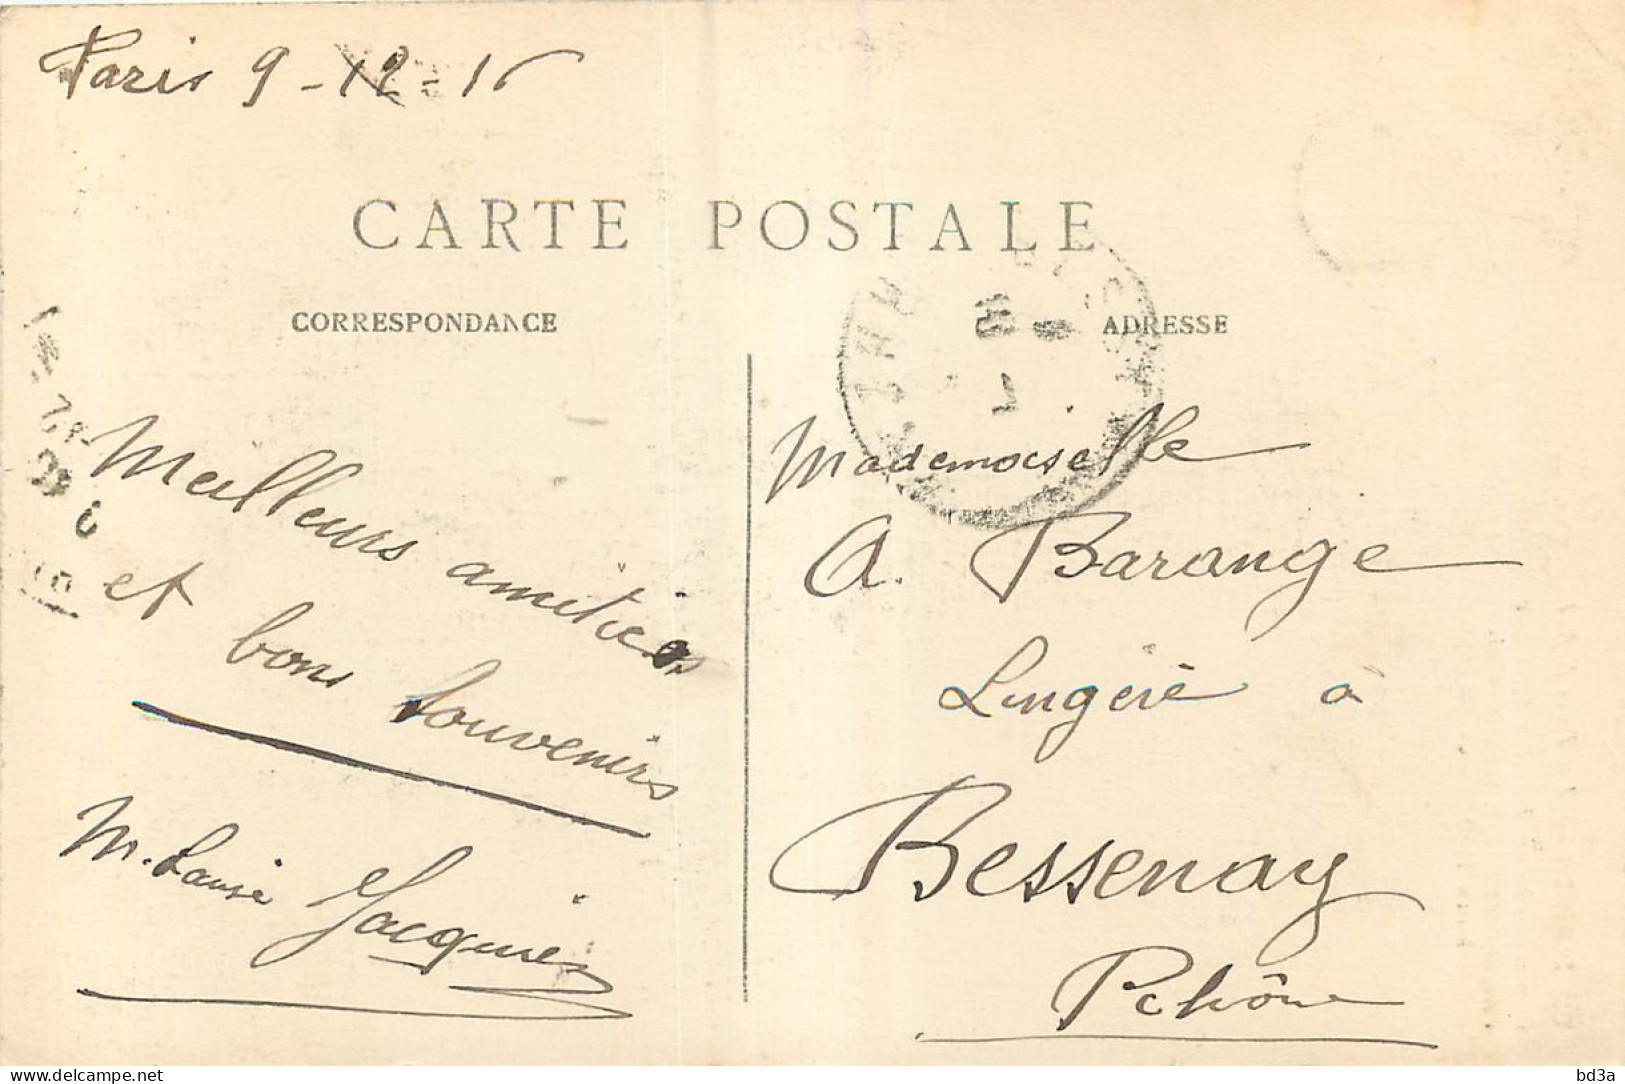 Paris 9-12-16
CARTE POSTALE
CORRESPONDANCE
ADRESSE
Meilleurs amitiés
et bons souvenirs
M. Louise Jacquier
Mademoiselle
A. Barange
Lingère à
Bessenay
Rhône
www.delcampe.net
bd3a